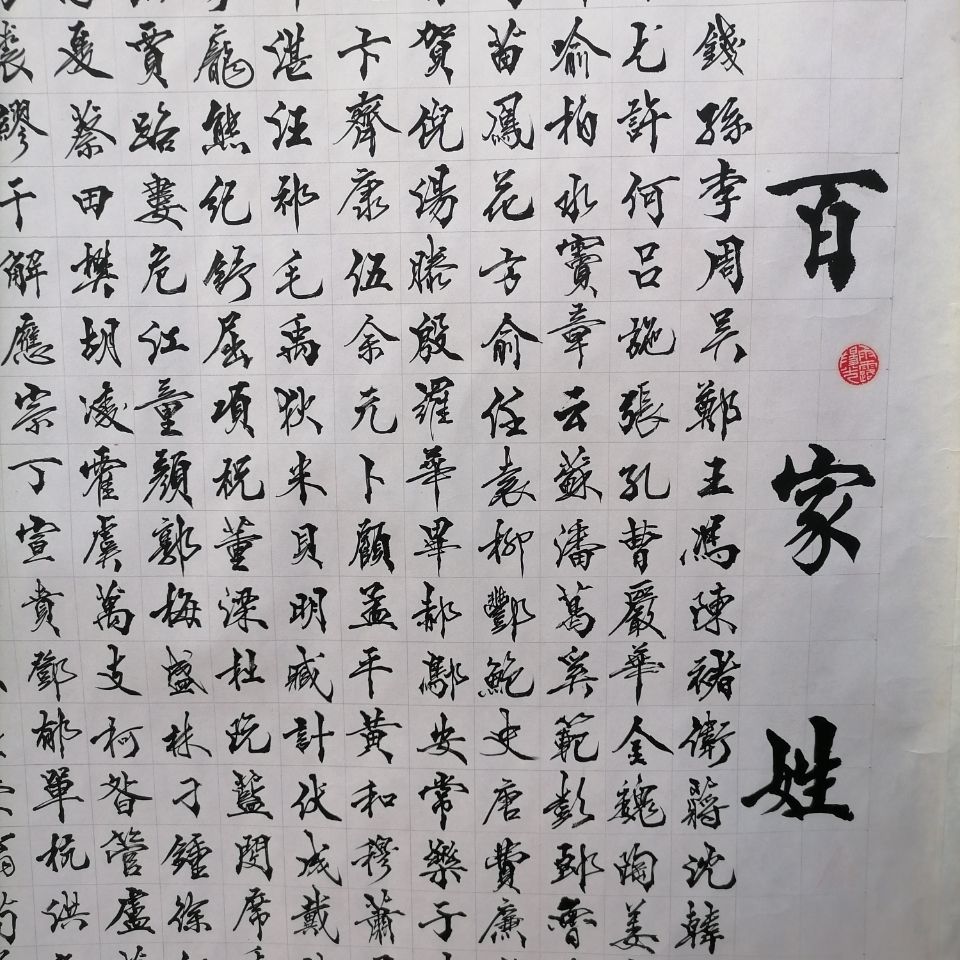 百家姓
雨露陽光
錢孫李周吳鄭王馮陳褚衛蔣沈韓
尤許何呂施張孔曹嚴華金魏陶姜
喻柏水竇章云蘇潘葛奚範彭郎魯
苗鳳花方俞任袁柳酆鮑史唐費廉
賀倪湯滕殷羅華畢郝鄔安常樂于
卞齊康伍余元卜顧孟平黃和穆蕭
湛汪祁毛禹狄米貝明臧計伏成戴
龐熊紀舒屈項祝董梁杜阮藍閔席
賈路婁危江童顏郭梅盛林刁鍾徐
夏蔡田樊胡凌霍虞萬支柯昝管盧
裘繆干解應宗丁宣賁鄧郁單杭洪